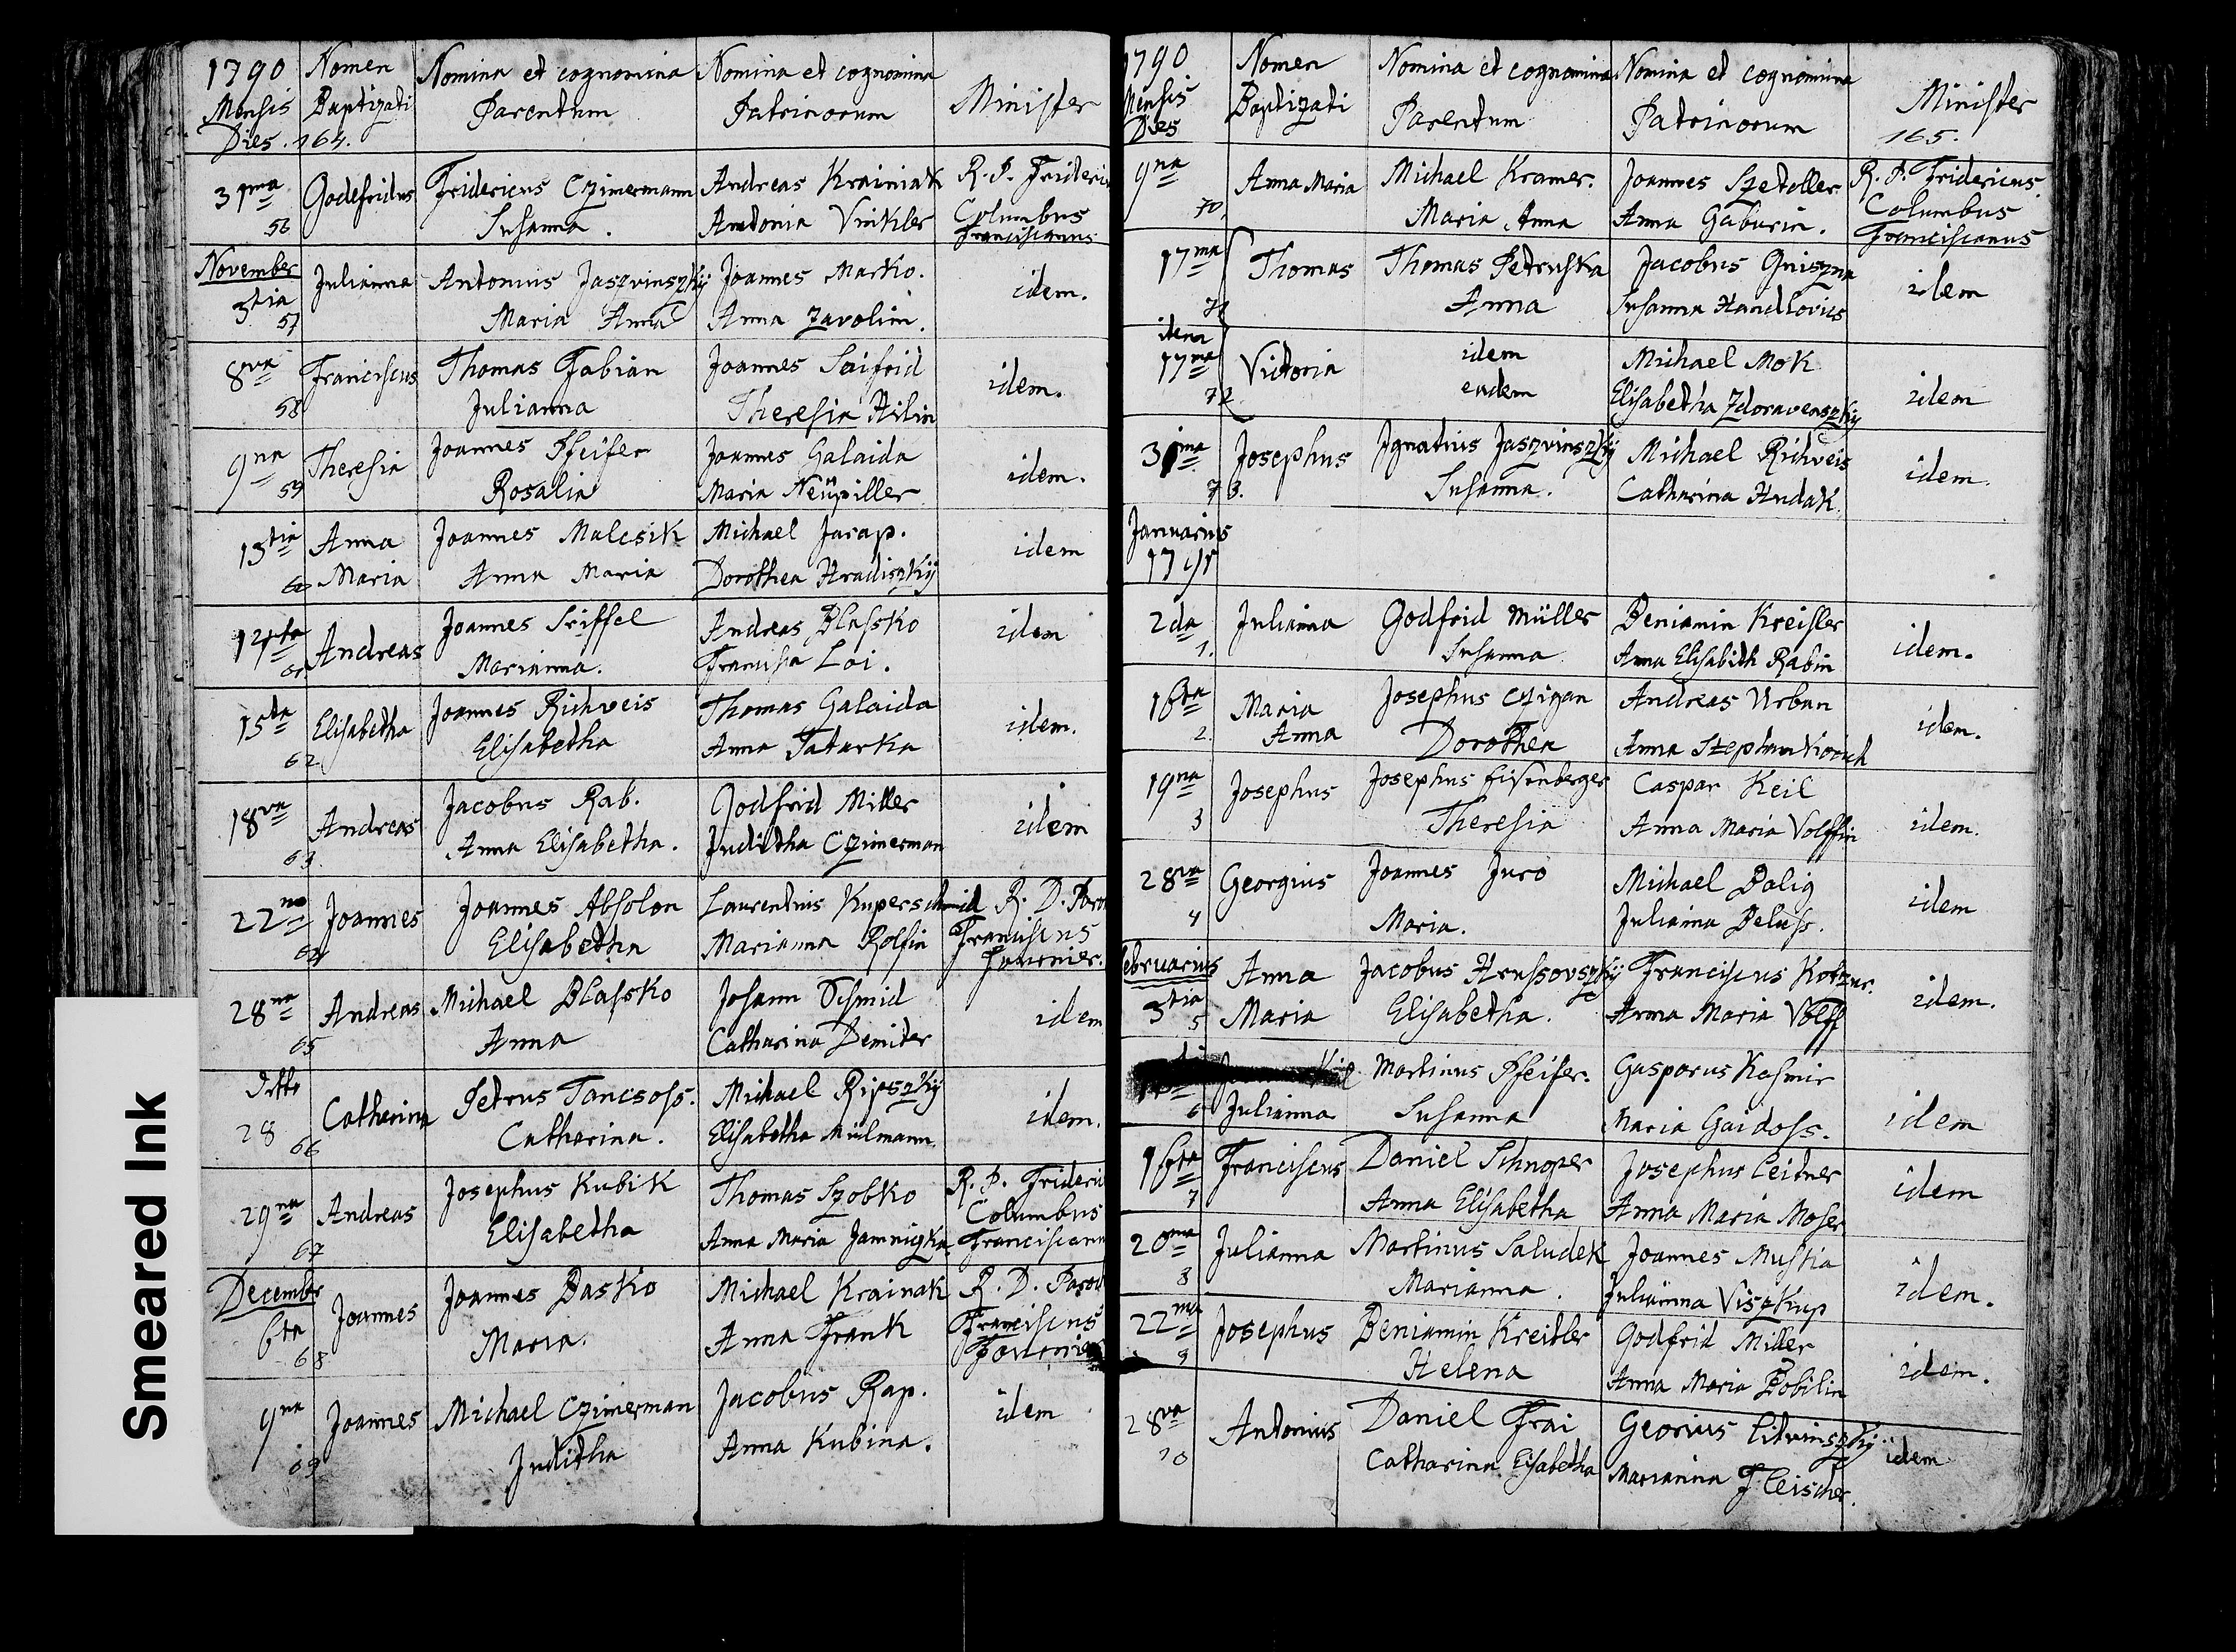 1790 Nomen Nomina et cognomina Nomina et cognomina
Mensis Baptizati Parentum Patrinorum Minister
Dies. 164.
31ma Godefridus Fridericus Czimermann Andreas Krainiak R. P. Frideric
56 Susanna. Antonia Vinkler Columbus
Franciscanus
November Julianna Antonius Jaszvinszkÿ Joannes Marko. idem.
3tia 57 Maria Anna Anna Zavolin.
8va Franciscus Thomas Fabian Joannes Saifrid idem.
58 Julianna Theresia Hilin
9na Theresia Joannes Pfeifer Joannes Galaida idem.
59 Rosalia Maria Neüpiller
13tia Anna Joannes Malcsik Michael Jarap. idem
60 Maria Anna Maria Dorothea Hradiszkÿ
14ta Andreas Joannes Sriffel Andreas Blasko idem
61 Marianna. Francisca Loi.
15ta Elisabetha Joannes Richveis Thomas Galaida idem.
62 Elisabetha Anna Tatarka
18va Andreas Jacobus Rab. Godfrid Miller idem
63. Anna Elisabetha. Juditha Czimerman
22na Joannes Joannes Absolon Laurentius Kuperschmid R. D. Paro
64 Elisabetha Marianna Rolfin Franciscus
28na Andreas Michael Blasko Johann Schmid idem
65 Anna Catharina Demiter
28 Catharina Petrus Toncsoss. Michael Ripszkÿ idem.
66 Catharina. Elisabetha Mülmann.
29na Andreas Josephus Kubik Thomas Szobko R. P. Frideric
67 Elisabetha Anna Maria Jamnizka Columbus
Franciscanu
December Joannes Joannes Basko Michael Krainak R. D. Paroch
6ta 68 Maria. Anna Frank Franciscus
9na Joannes Michael Czimerman Jacobus Rap. idem
69 Juditha Anna Kubina.
1790 Nomen Nomina et cognomina Nomina et cognomina
Mensis Baptizati Parentum Patrinorum Minister
Dies 165.
9na Anna Maria Michael Kramer. Joannes Szetoller. R. P. Fridericus
70 Maria Anna Anna Gaburin. Columbus
Franciscanus
17ma Thomas Thomas Petruska Jacobus Gniszna idem
71 Anna Susanna Handlovics
idem
17ma Victoria idem Michael Mok idem
72 eadem Elisabetha Zdoravenszkÿ
31ma Josephus Ignatius Jaszvinszkÿ Michael Richveis idem.
73. Susanna. Catharina Hudak.
Januarius
1791
2da Julianna Godfrid Müller Beniamin Kreisler idem.
1. Susanna Anna Elisabeth Rabin
16ta Maria Josephus Czigan Andreas Urban idem.
2. Anna Dorothea Anna
19na Josephus Josephus Eisenberger Caspar Keil idem.
3 Theresia Anna Maria Volffin
28va Georgius Joannes Juro Michael Balig idem
4 Maria. Julianna Beluss.
Februarius Anna Jacobus Hrussovszkÿ Franciscus Kotznr. idem.
3tia 5 Maria Elisabetha. Anna Maria Volff
Martinus Pfeifer. Gasparus Kasmir
6 Julianna Susanna Maria Gaidoss. idem
16ta Franciscus Daniel Schnoper Josephus Leitner idem
7 Anna Elisabetha Anna Maria Moser
20ma Julianna Martinus Saludek Joannes Muskia idem.
8 Marianna. Julianna Viszkup
22na Josephus Beniamin Kreitler Godfrid Miller idem.
9 Helena Anna Maria Bobilin
28va Antonius Daniel Frai Georius Litvinszkÿ idem
10 Catharina Elisabetha Marianna Fleischer.
Smeared Ink